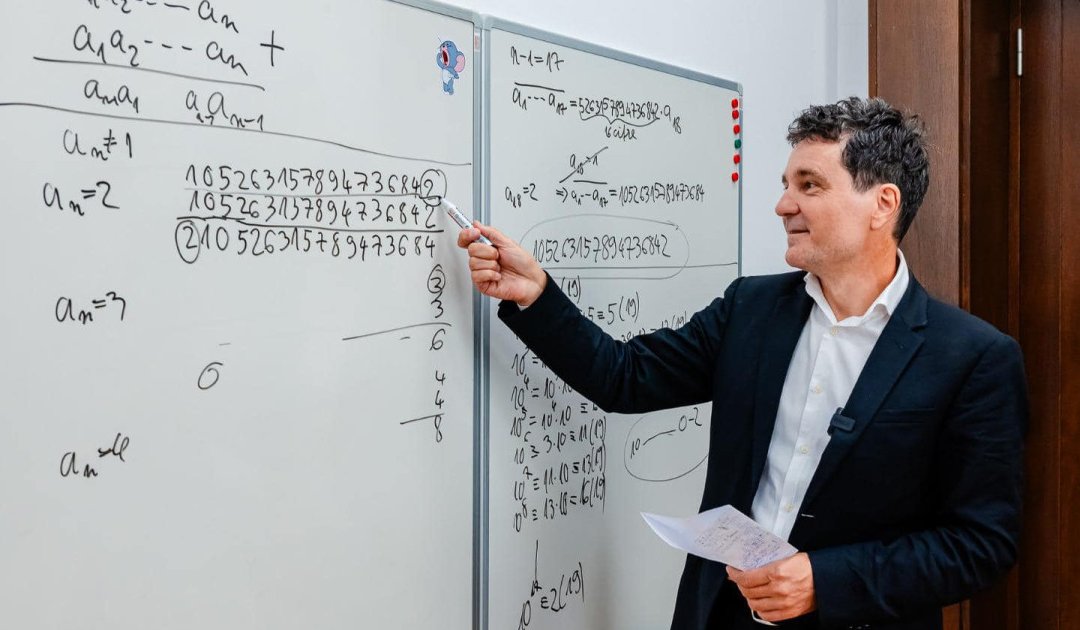 a₁a₂---aₙ +
aₙa₁ a₂aₙ₋₁
aₙ≠1
aₙ=2
105263157894736842
105263157894736842
210526315789473684
aₙ=3
3
3
6
0
4
4
8
n-1=17
a₁---a₁₇=5263157894736842·a₁₈
16 cifre
a₁₈=1
a₁₈=2 => a₁-a₁₇=10526315789473684
105263157894736842
(19)
≡5(19)
10⁴=10
10⁵=10⁴·10≡
10⁶≡3·10≡11(19)
10⁷≡11·10≡15(19)
10⁸≡13·10≡16(19)
10 — 0-2
10¹⁷≡2(19)